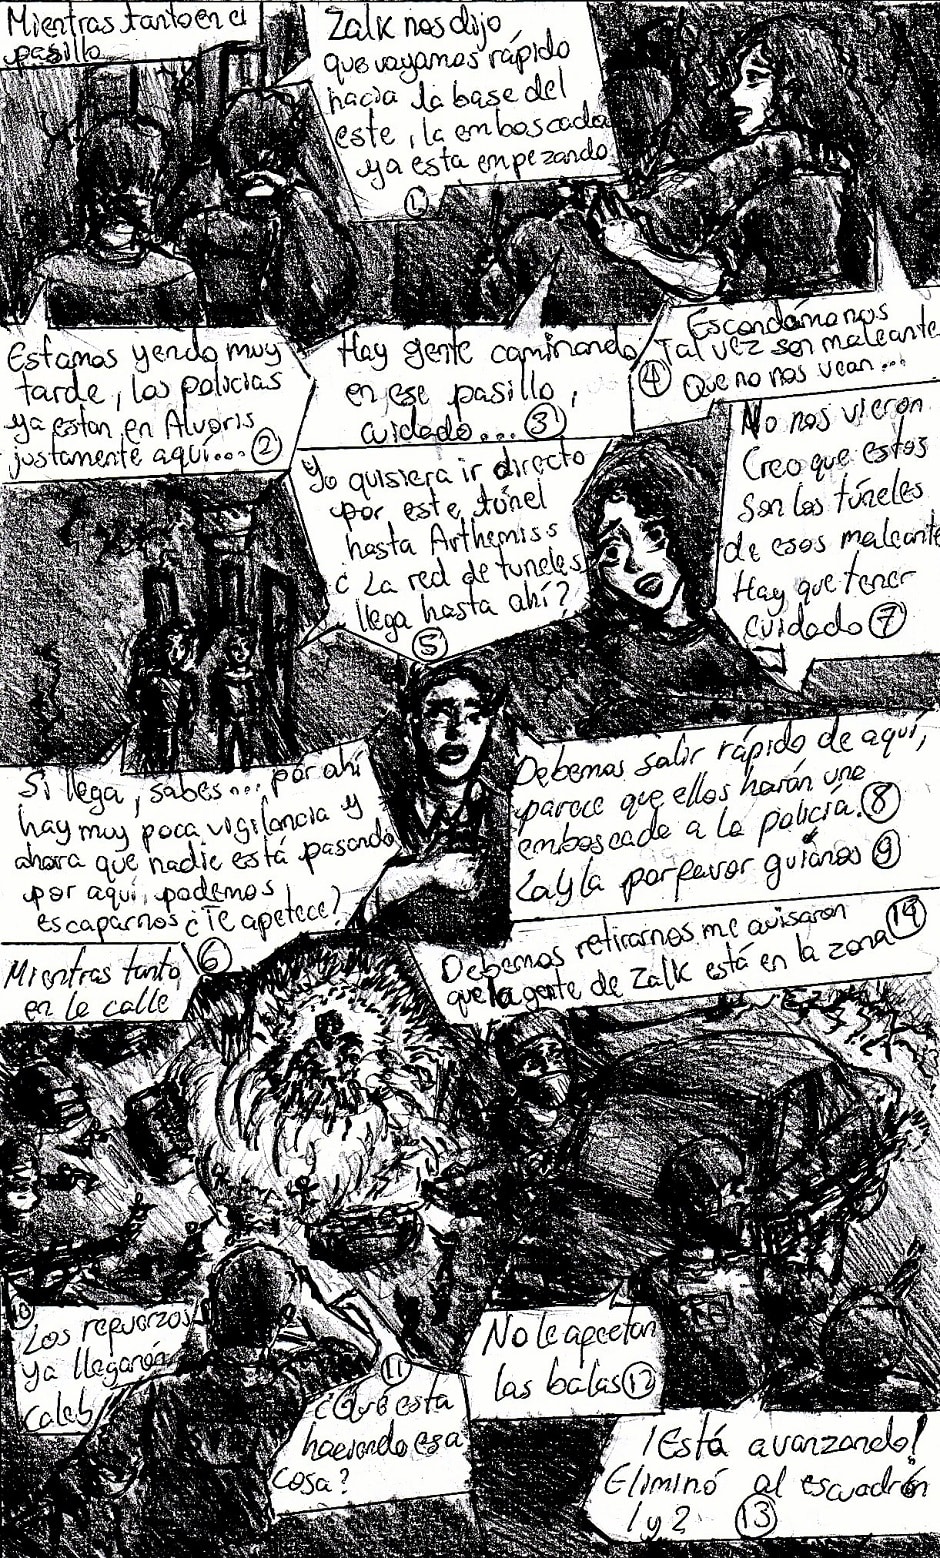 Mientras tanto en el
pasillo
Zalk nos dijo
que vayamos rápido
hacia la base del
este, la emboscada
ya esta empezando
1
Estamos yendo muy
tarde, los policias
ya estan en Alvoris
justamente aquí... 2
Hay gente caminando
en ese pasillo,
cuidado... 3
Escondámonos
Tal vez son maleante
4 Que no nos vean...
Yo quisiera ir directo
por este túnel
hasta Arthemiss
¿La red de tuneles
llega hasta ahí?
5
Si llega, sabes... por ahí
hay muy poca vigilancia y
ahora que nadie está pasando
por aquí, podemos
escaparnos ¿Te apetece?
6
No nos vieron
Creo que estos
Son los túneles
de esos maleante
Hay que tener
cuidado 7
Debemos salir rápido de aquí,
parece que ellos harán una
emboscada a la policía. 8
Layla porfavor guianos 9
Mientras tanto
en le calle
10
Los refuerzos
ya llegaron
Caleb
11
¿Qué esta
haciendo esa
cosa?
No le afectan
las balas 12
¡Está avanzando!
Eliminó al escuadrón
1 y 2 13
Debemos retirarnos me avisaron 14
que la gente de Zalk está en la zona